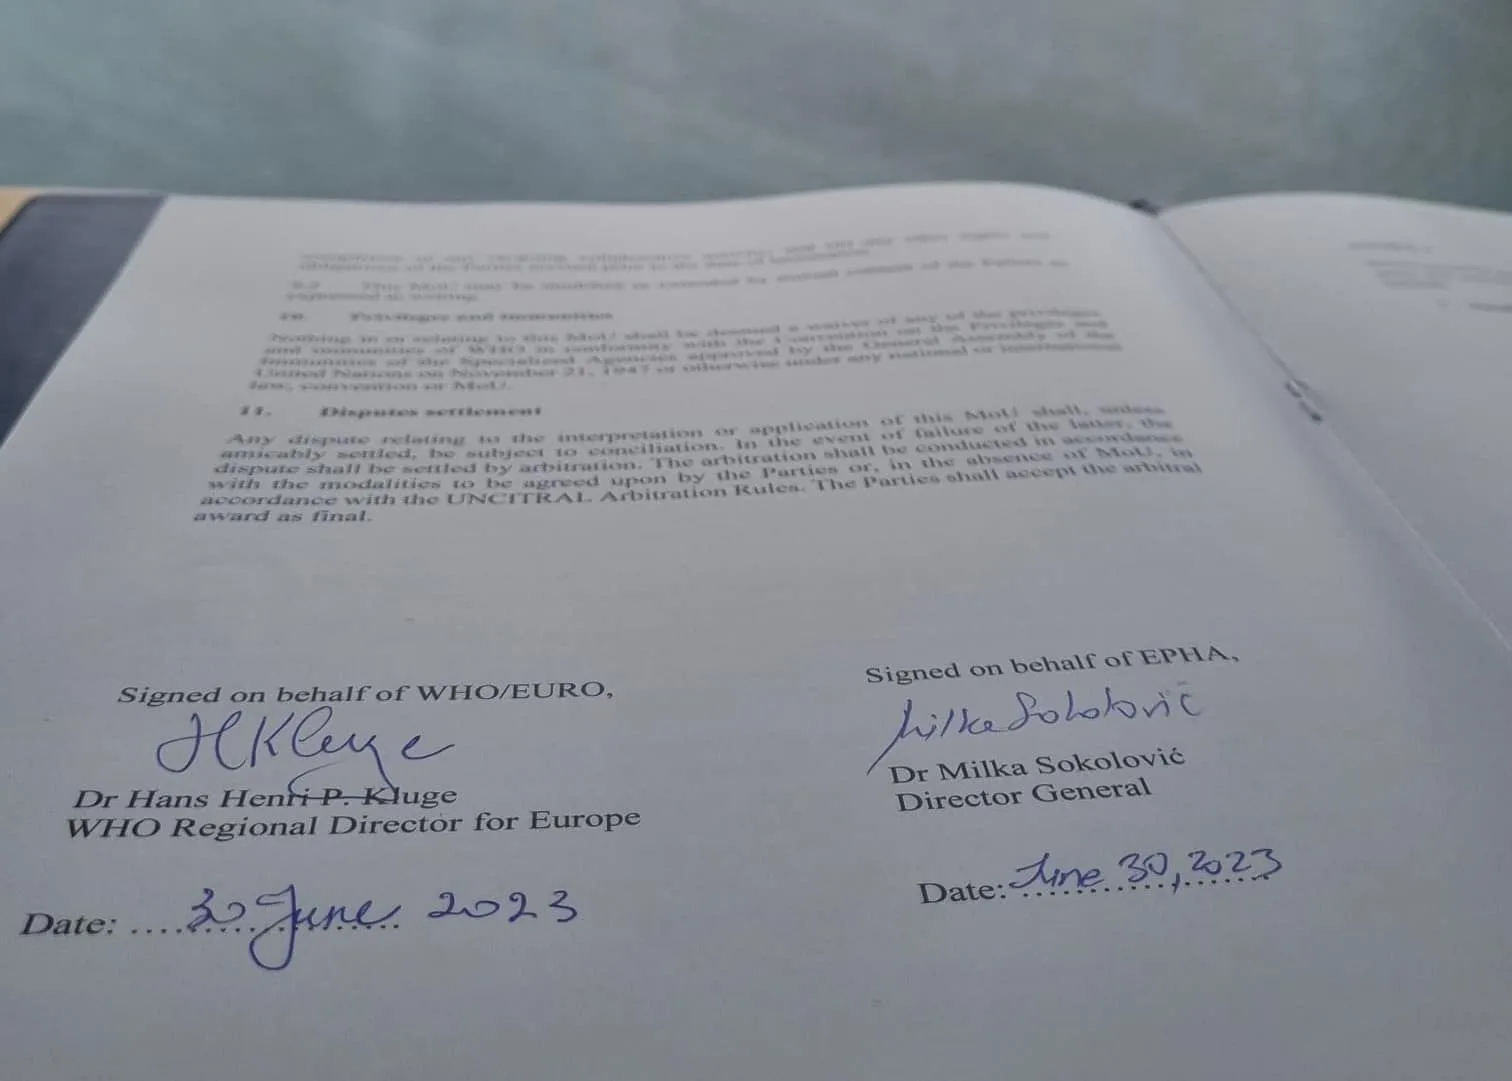 obligations of the Parties accrued prior to the date of termination.
This MoU may be modified or extended by mutual consent of the Parties as
expressed in writing.
10. Privileges and immunities
Nothing in or relating to this MoU shall be deemed a waiver of any of the privileges
and immunities of WHO in conformity with the Convention on the Privileges and
Immunities of the Specialized Agencies approved by the General Assembly of the
United Nations on November 21, 1947 or otherwise under any national or international
law, convention or MoU.
11. Disputes settlement
Any dispute relating to the interpretation or application of this MoU shall, unless
amicably settled, be subject to conciliation. In the event of failure of the latter, the
dispute shall be settled by arbitration. The arbitration shall be conducted in accordance
with the modalities to be agreed upon by the Parties or, in the absence of MoU, in
accordance with the UNCITRAL Arbitration Rules. The Parties shall accept the arbitral
award as final.
Signed on behalf of WHO/EURO,
HKluge
Dr Hans Henri P. Kluge
WHO Regional Director for Europe
Date: ....30 June 2023
Signed on behalf of EPHA,
Milka Sokolović
Dr Milka Sokolović
Director General
Date: June 30, 2023